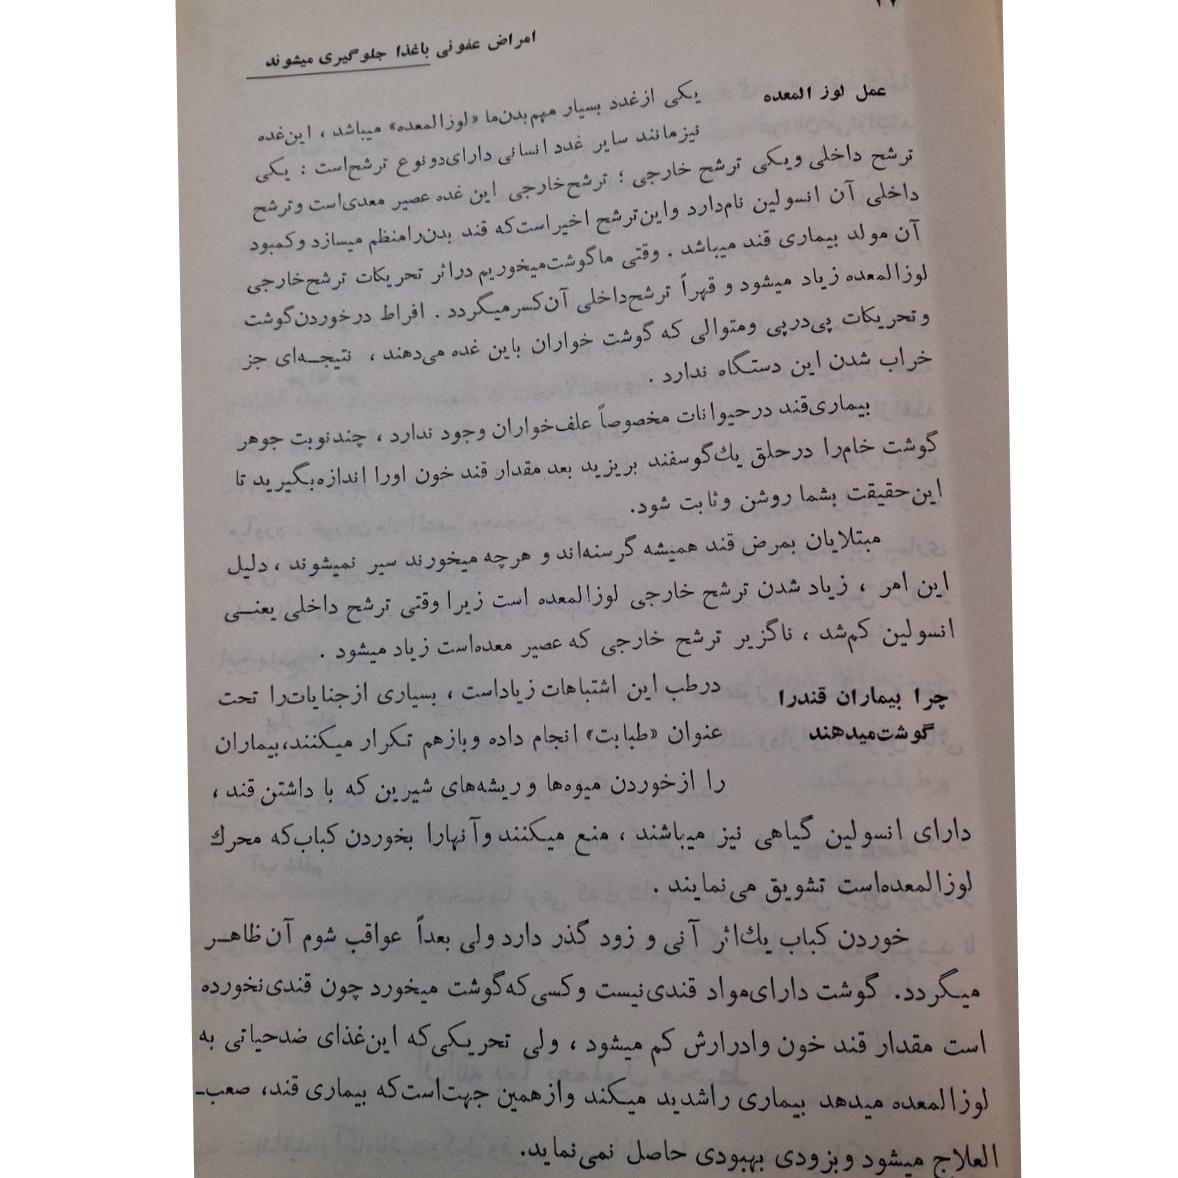 ۲۷
امراض عفونی باغذا جلوگیری میشوند
عمل لوز المعده
یکی ازغدد بسیار مهم‌بدن‌ما «لوزالمعده» میباشد ، این‌غده
نیزمانند سایر غدد انسانی دارای‌دونوع ترشح‌است : یکی
ترشح داخلی ویکی ترشح خارجی ؛ ترشح‌خارجی این غده عصیر معدی‌است وترشح
داخلی آن انسولین نام‌دارد واین‌ترشح اخیراست‌که قند بدن‌رامنظم میسازد وکمبود
آن مولد بیماری قند میباشد . وقتی ماگوشت‌میخوریم دراثر تحریکات ترشح‌خارجی
لوزالمعده زیاد میشود و قهراً ترشح‌داخلی آن‌کسرمیگردد . افراط درخوردن‌گوشت
وتحریکات پی‌درپی ومتوالی که گوشت خواران باین غده می‌دهند ، نتیجه‌ای جز
خراب شدن این دستگاه ندارد .
بیماری‌قند درحیوانات مخصوصاً علف‌خواران وجود ندارد ، چندنوبت جوهر
گوشت خام‌را درحلق یك‌گوسفند بریزید بعد مقدار قند خون اورا اندازه‌بگیرید تا
این‌حقیقت بشما روشن وثابت شود.
مبتلایان بمرض قند همیشه گرسنه‌اند و هرچه میخورند سیر نمیشوند ، دلیل
این امر ، زیاد شدن ترشح خارجی لوزالمعده است زیرا وقتی ترشح داخلی یعنی
انسولین کم‌شد ، ناگزیر ترشح خارجی که عصیر معده‌است زیاد میشود .
چرا بیماران قندرا
گوشت‌میدهند
درطب این اشتباهات زیاداست ، بسیاری ازجنایات‌را تحت
عنوان «طبابت» انجام داده وبازهم تکرار میکنند،بیماران
را ازخوردن میوه‌ها وریشه‌های شیرین که با داشتن قند ،
دارای انسولین گیاهی نیز میباشند ، منع میکنند وآنهارا بخوردن کباب‌که محرك
لوزالمعده‌است تشویق می‌نمایند .
خوردن کباب یك‌اثر آنی و زود گذر دارد ولی بعداً عواقب شوم آن ظاهر
میگردد. گوشت دارای‌مواد قندی‌نیست وکسی‌که‌گوشت میخورد چون قندی‌نخورده
است مقدار قند خون وادرارش کم میشود ، ولی تحریکی‌که این‌غذای ضدحیاتی به
لوزالمعده میدهد بیماری راشدید میکند وازهمین جهت‌است‌که بیماری قند، صعب-
العلاج میشود وبزودی بهبودی حاصل نمی‌نماید.